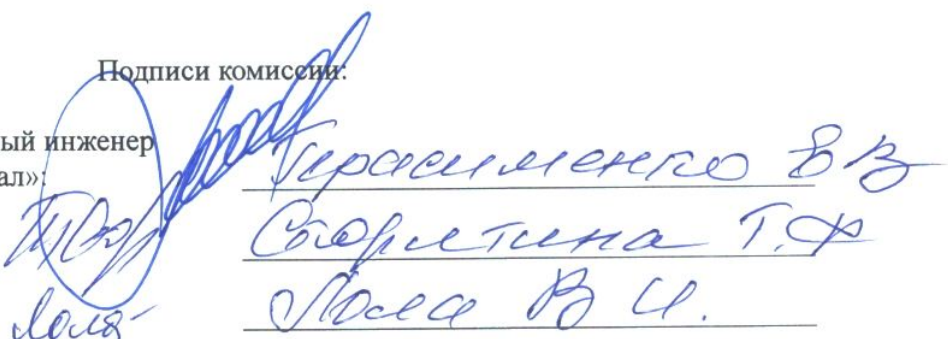 Подписи комиссии:
ый инженер
ал»: Герасименко В В
Т.Ф
Лола Лола В И.